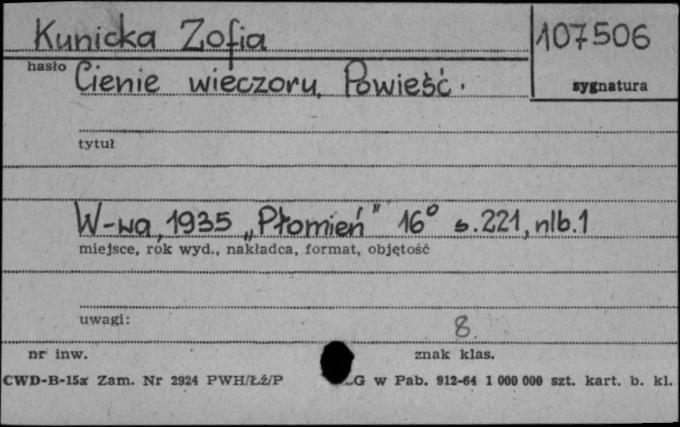 Kunicka Zofia
107506
hasło
sygnatura
Cienie wieczoru. Powieść.
tytuł
W-wa, 1935 „Płomień" 16° s. 221, nlb. 1
miejsce, rok wyd., nakładca, format, objętość
uwagi:
8.
nr inw.
znak klas.
CWD-B-15a Zam. Nr 2924 PWH/Łź/P G w Pab. 912-64 1 000 000 szt. kart. b. kl.